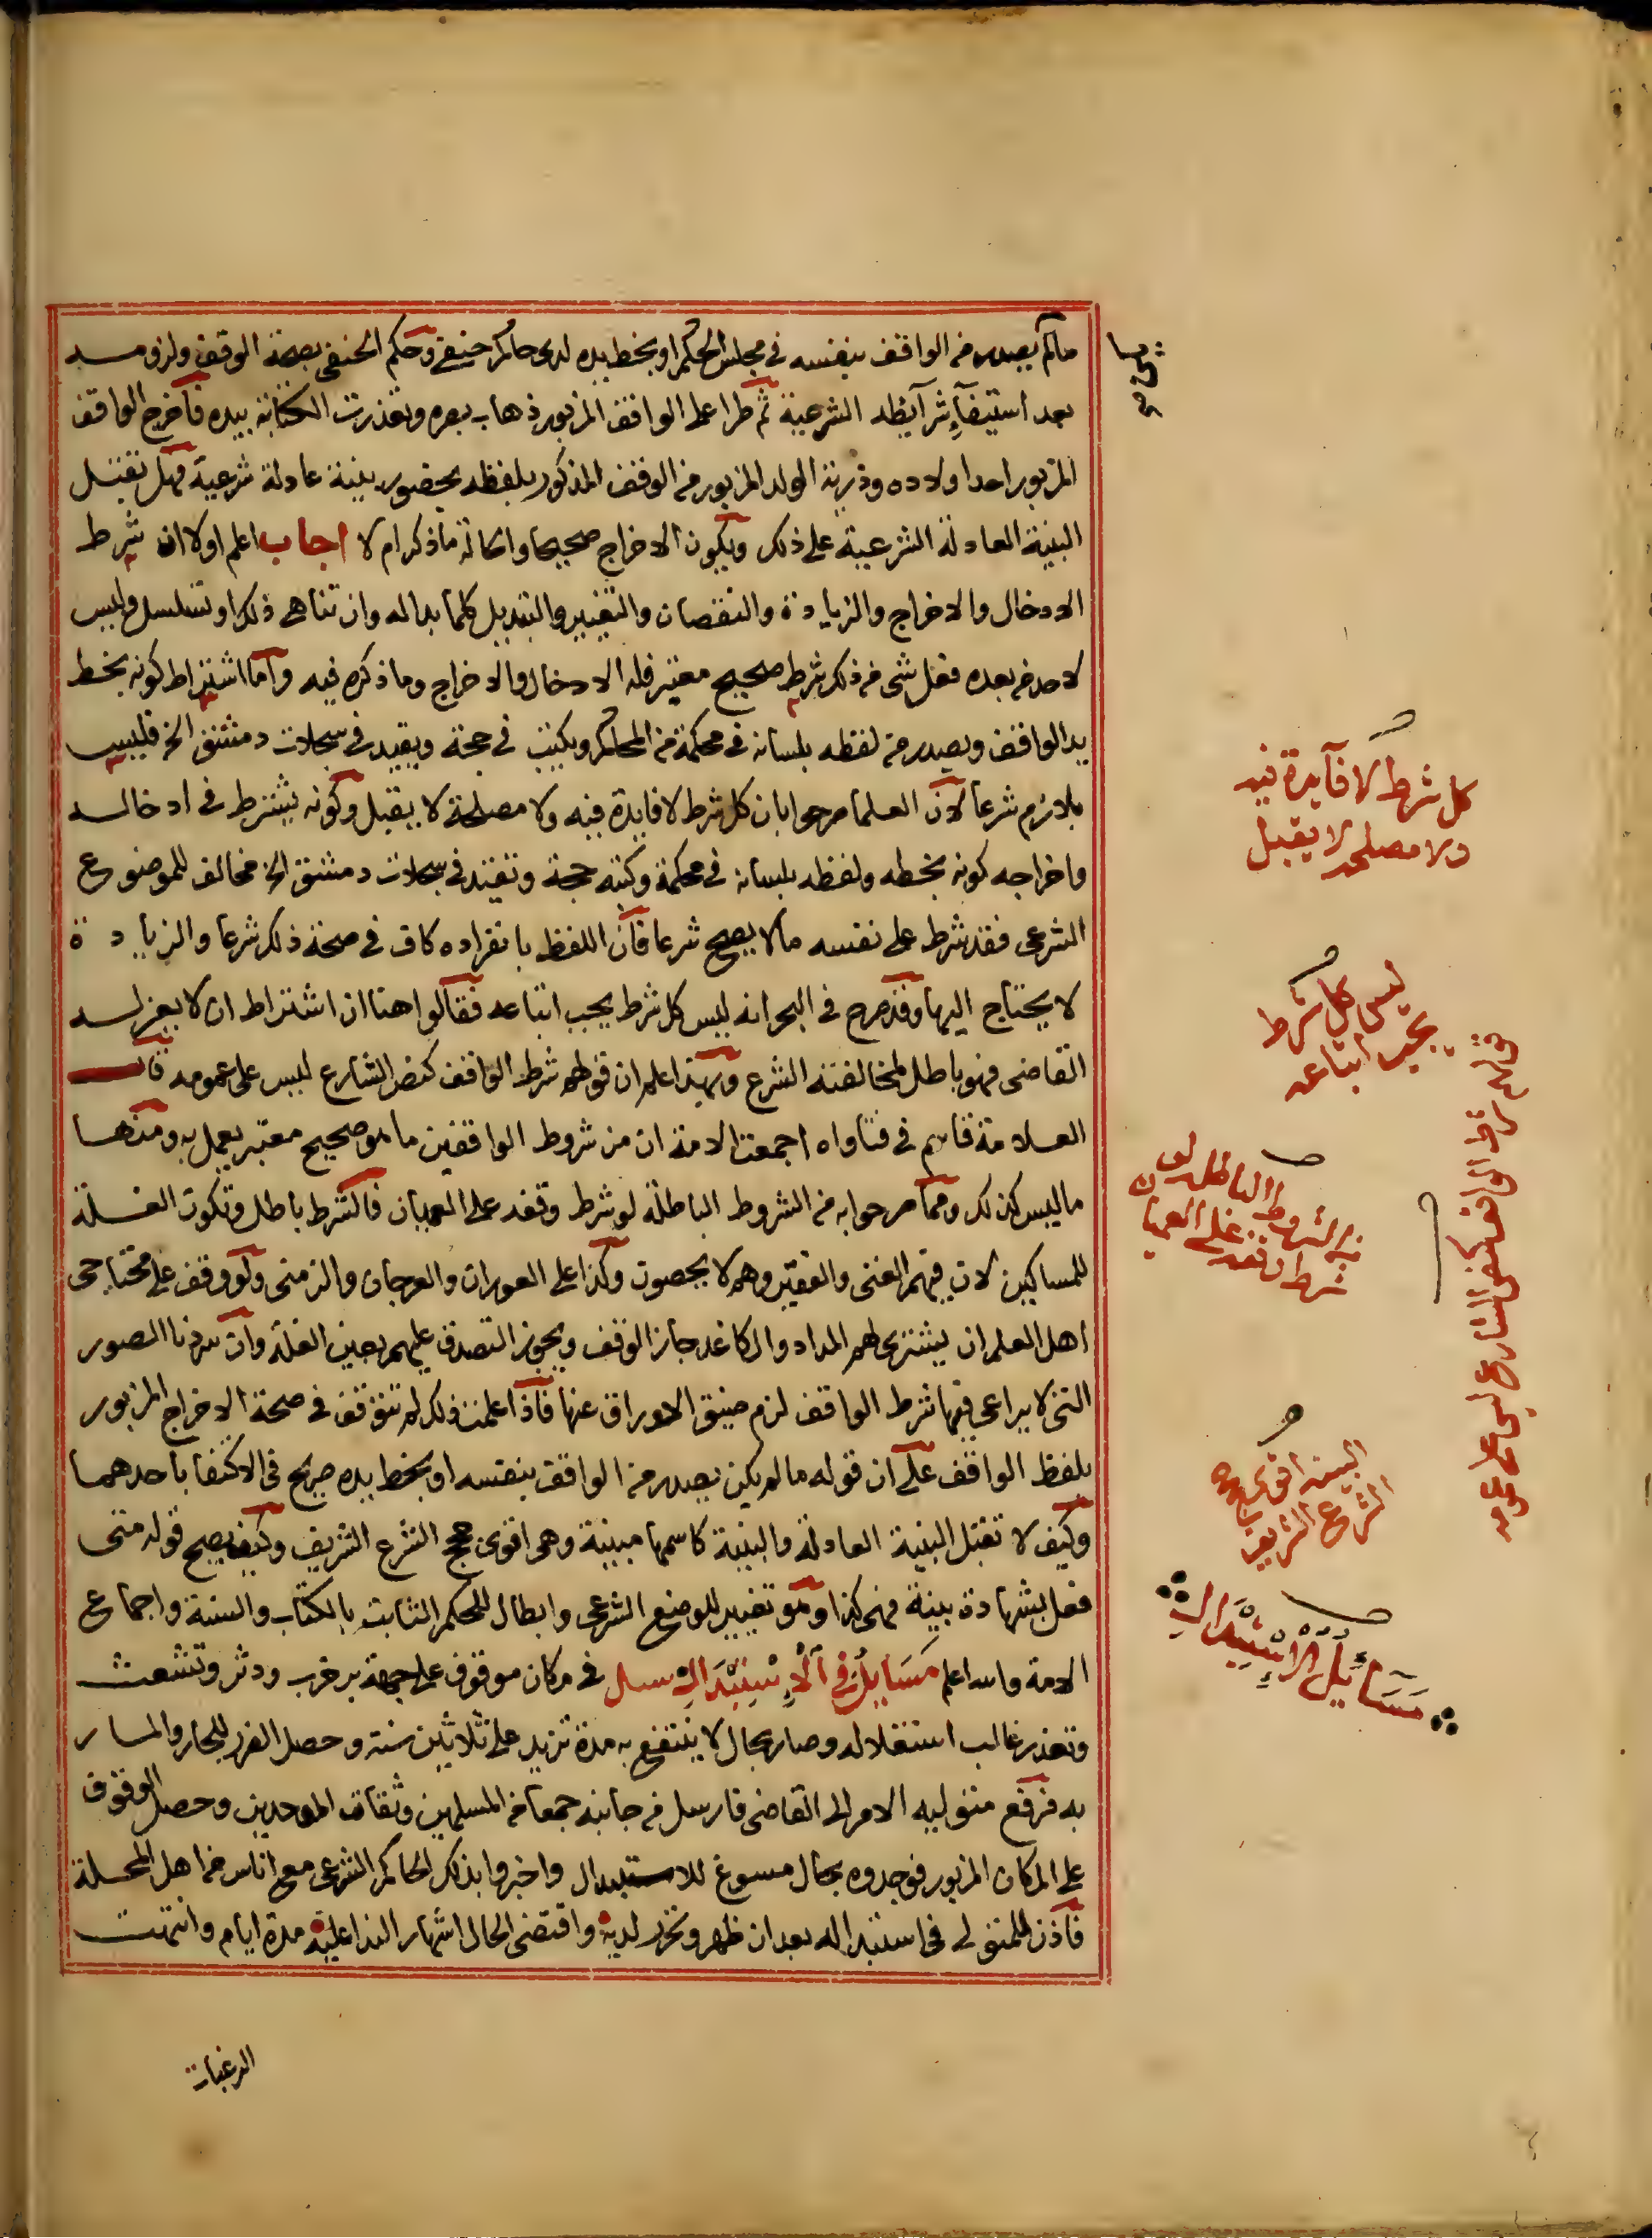 مالم يصدر من الواقف بنفسه في مجلس الحكم او بخط يده لدى حاكم حنفي وحكم الحنفي بصحة الوقف ولزومه
بعد استيفآء شرآئطه الشرعية ثم طرا على الواقف المزبور ذهاب بصره وتعذرت الكتابة بيده فاخرج الواقف
المزبور احد اولاده وذرية الولد المزبور من الوقف المذكور بلفظه بحضور بينة عادلة شرعية فهل تقبل
البينة العادلة الشرعية على ذلك ويكون الاخراج صحيحا والحالة ماذكر ام لا اجاب اعلم اولا ان شرط
الادخال والاخراج والزيادة والنقصان والتغيير والتبديل كلما بدا له وان تناهى ذلك او تسلسل وليس
لاحد من بعده فعل شى من ذلك شرط صحيح معتبر فله الادخال والاخراج وما ذكره فيه واما اشتراط كونه بخط
يد الواقف ويصدر من لفظه بلسانه في محكمة من المحاكم ويكتب في حجة ويقيد في سجلات دمشق الخ فليس
بلازم شرعا لان العلما صرحوا بان كل شرط لا فايدة فيه ولا مصلحة لا يقبل وكونه يشترط في ادخاله
واخراجه كونه بخطه ولفظه بلسانه في محكمة وكتبه حجة وتقيد في سجلات دمشق الخ مخالف للموضوع
الشرعى فقد شرط على نفسه مالا يصح شرعا فان اللفظ بانفراده كاف في صحة ذلك شرعا والزيادة
لا يحتاج اليها وقد صرح في البحر انه ليس كل شرط يجب اتباعه فقالوا هنا ان اشتراط ان لا يعزله
القاضى فهو باطل لمخالفته الشرع وبهذا علم ان قولهم شرط الواقف كنص الشارع ليس على عمومه قال
العلامة قاسم في فتاواه اجمعت الامة ان من شروط الواقفين ما هو صحيح معتبر يعمل به ومنها
ما ليس كذلك ومما صرحوا به من الشروط الباطلة لو شرط وقفه على العميان فالشرط باطل وتكون الغلة
للمساكين لان فيهم الغنى والفقير وهم لا يحصون وكذا على العوران والعرجان والزمنى ولو وقف على محتاجى
اهل العلم ان يشترى لهم المداد والكاغد جاز الوقف ويجوز التصدق عليهم بعين الغلة وان سردنا الصور
التى لا يراعى فيها شرط الواقف لزم ضيق الاوراق عنها فاذا علمت ذلك لم تتوقف في صحة الاخراج المزبور
بلفظ الواقف على ان قوله مالم يكن يصدر من الواقف بنفسه او بخط يده صريح في الاكتفا باحدهما
وكيف لا تقبل البينة العادلة والبينة كاسمها مبينة وهى اقوى حجج الشرع الشريف وكيف يصح قوله متى
فعل بشهادة بينة فهى كذا وهو تغيير للوضع الشرعى وابطال للحكم الثابت بالكتاب والسنة واجماع
الامة والله اعلم مسايل في الاستبدال سىل في مكان موقوف على جهة بر خرب ودثر وتشعث
وتعذر غالب استغلاله وصار بحال لا ينتفع به مدة تزيد على ثلاثين سنة وحصل الضرر للجار والمار
به فرفع متوليه الامر الى القاضى فارسل من جانبه جمعا من المسلمين وثقات الموحدين وحصل الوقوف
على المكان المزبور فوجدوه بحال مسوغ للاستبدال واخبروا بذلك الحاكم الشرعى مع اناس من اهل المحلة
فاذن للمتولى في استبداله بعد ان ظهر وتحرر لديه واقتضى الحال اشهار الندا عليه مدة ايام وانتهت
الرغبات
كل شرط لا فآيدة فيه
ولا مصلحة لا يقبل
ليس كل شرط
يجب اتباعه
قولهم شرط الواقف كنص الشارع ليس على عمومه
من الشروط الباطلة لو
شرط وقفه على العميان
البينة اقوى حجج
الشرع الشريف
مسائل الاستبدال